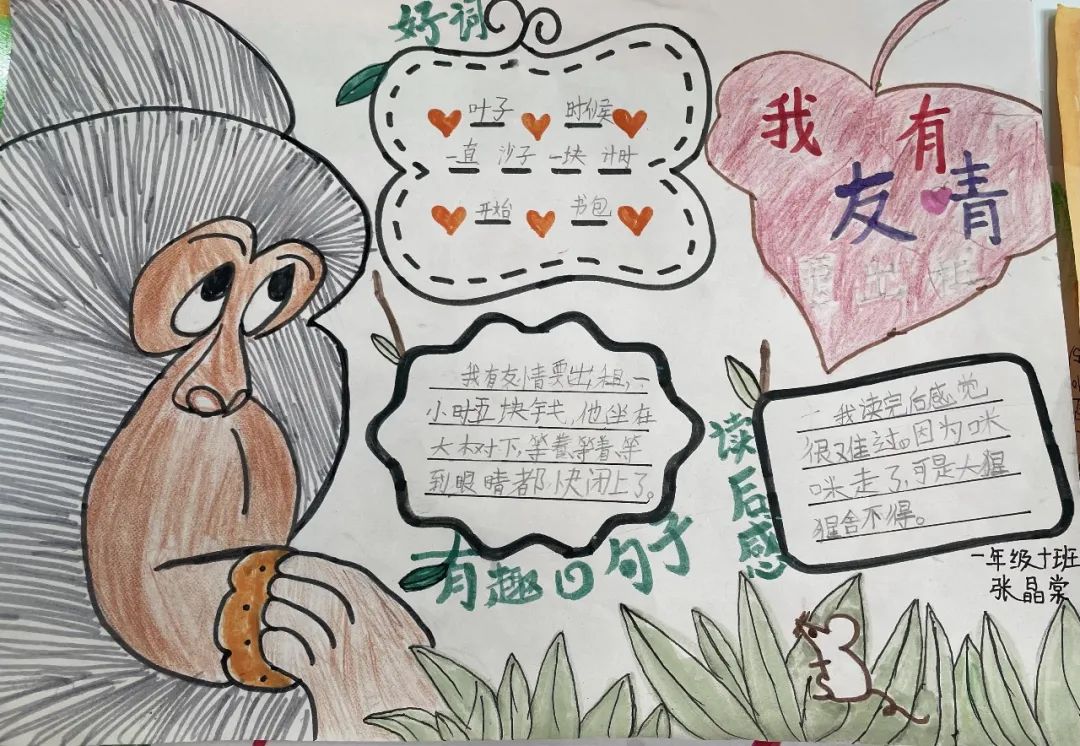 好词
叶子 时候
一直 沙子 一块 计时
开始 书包
我有
友情
要出租
我有友情要出租,一
小时五块钱,他坐在
大树下,等着,等着,等
到眼睛都快闭上了。
有趣的句子
读后感
我读完后感觉
很难过。因为咪
咪走了,可是大猩
猩舍不得。
一年级十班
张晶棠